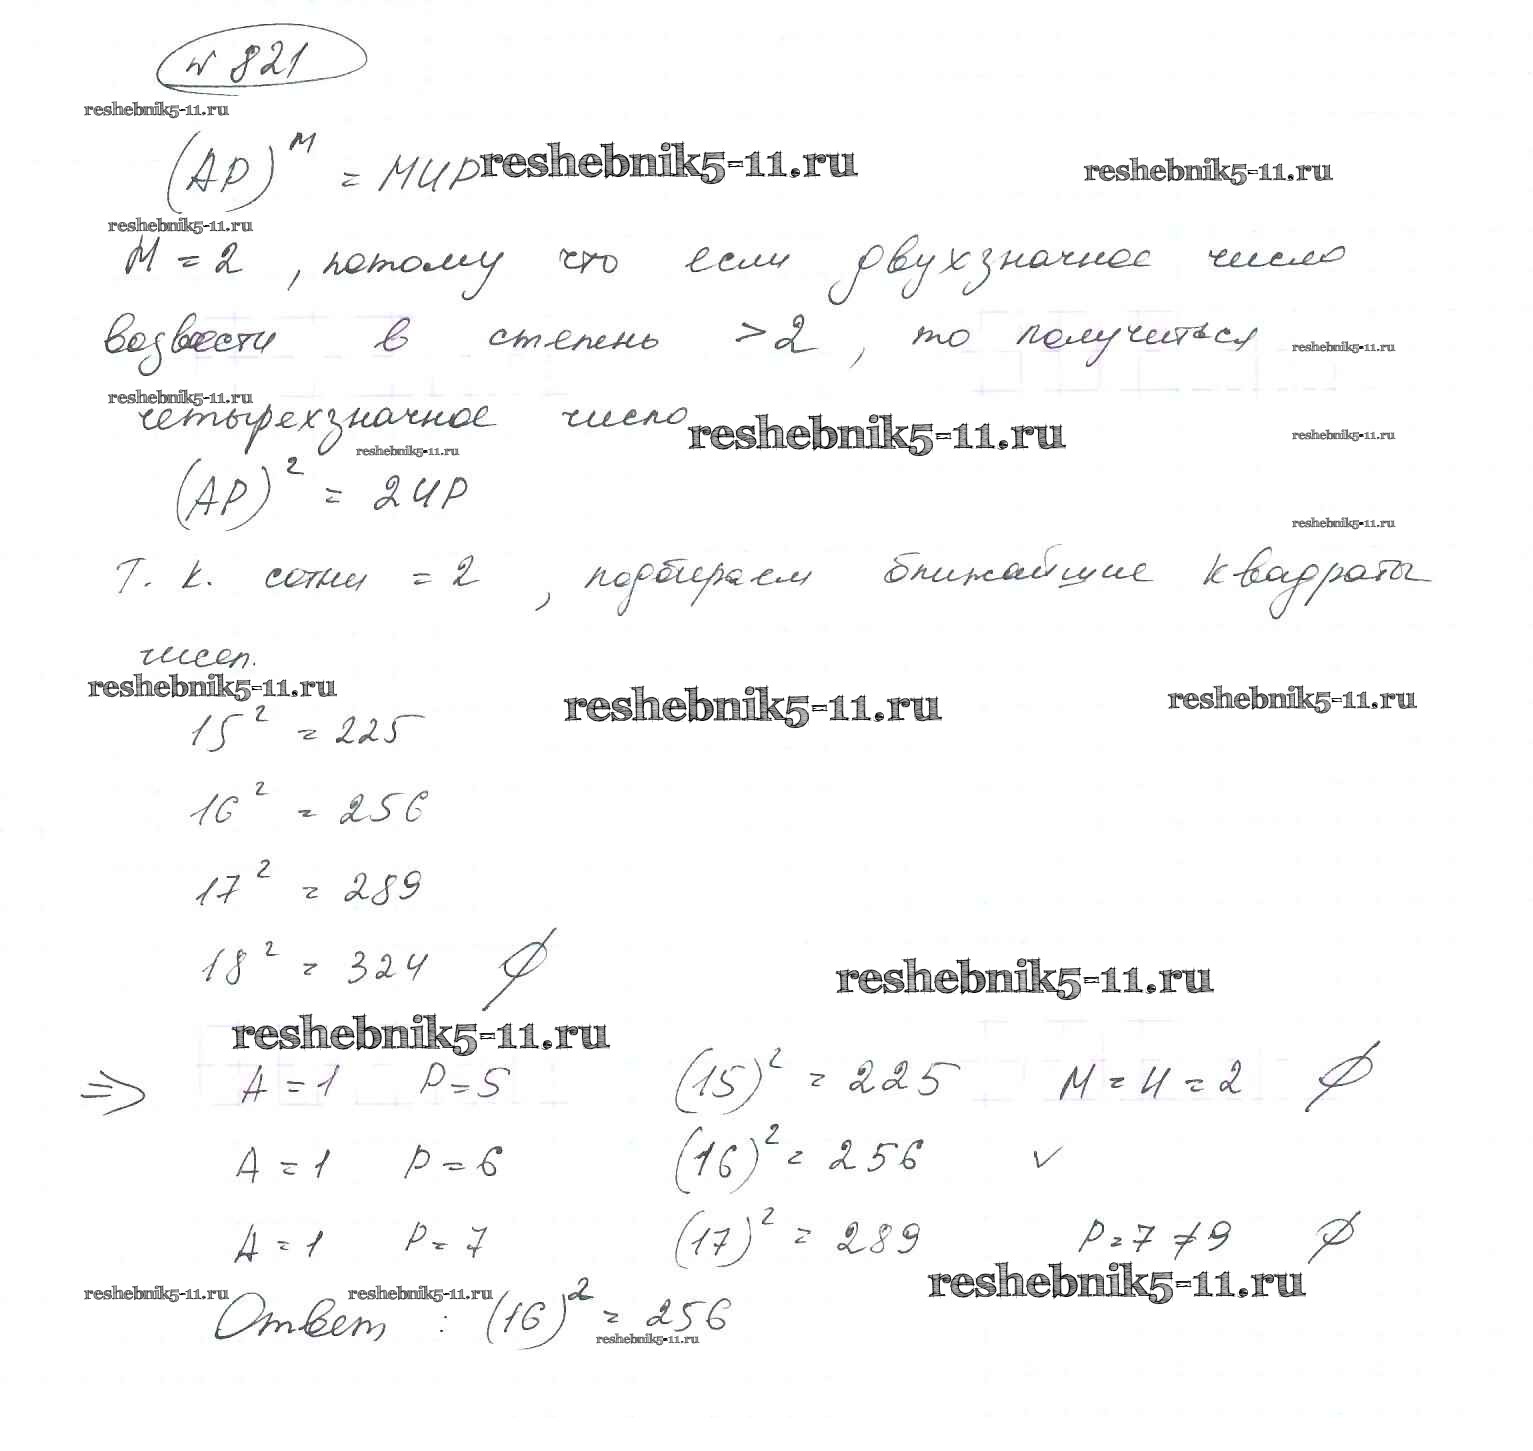 № 821
reshebnik5-11.ru
(АР)^М = МИР reshebnik5-11.ru reshebnik5-11.ru
reshebnik5-11.ru
М = 2 , потому что если двухзначное число
возвести в степень >2 , то получиться reshebnik5-11.ru
reshebnik5-11.ru
четырехзначное число reshebnik5-11.ru reshebnik5-11.ru
reshebnik5-11.ru
(АР)² = 2ИР
reshebnik5-11.ru
Т. к. сотни = 2 , подбираем ближайшие квадраты
чисел.
reshebnik5-11.ru reshebnik5-11.ru reshebnik5-11.ru
15² = 225
16² = 256
17² = 289
18² = 324 ∅
reshebnik5-11.ru
reshebnik5-11.ru
=> А = 1 Р = 5 (15)² = 225 М = И = 2 ∅
А = 1 Р = 6 (16)² = 256 ✓
А = 1 Р = 7 (17)² = 289 Р = 7 ≠ 9 ∅
reshebnik5-11.ru reshebnik5-11.ru reshebnik5-11.ru
Ответ : (16)² = 256
reshebnik5-11.ru